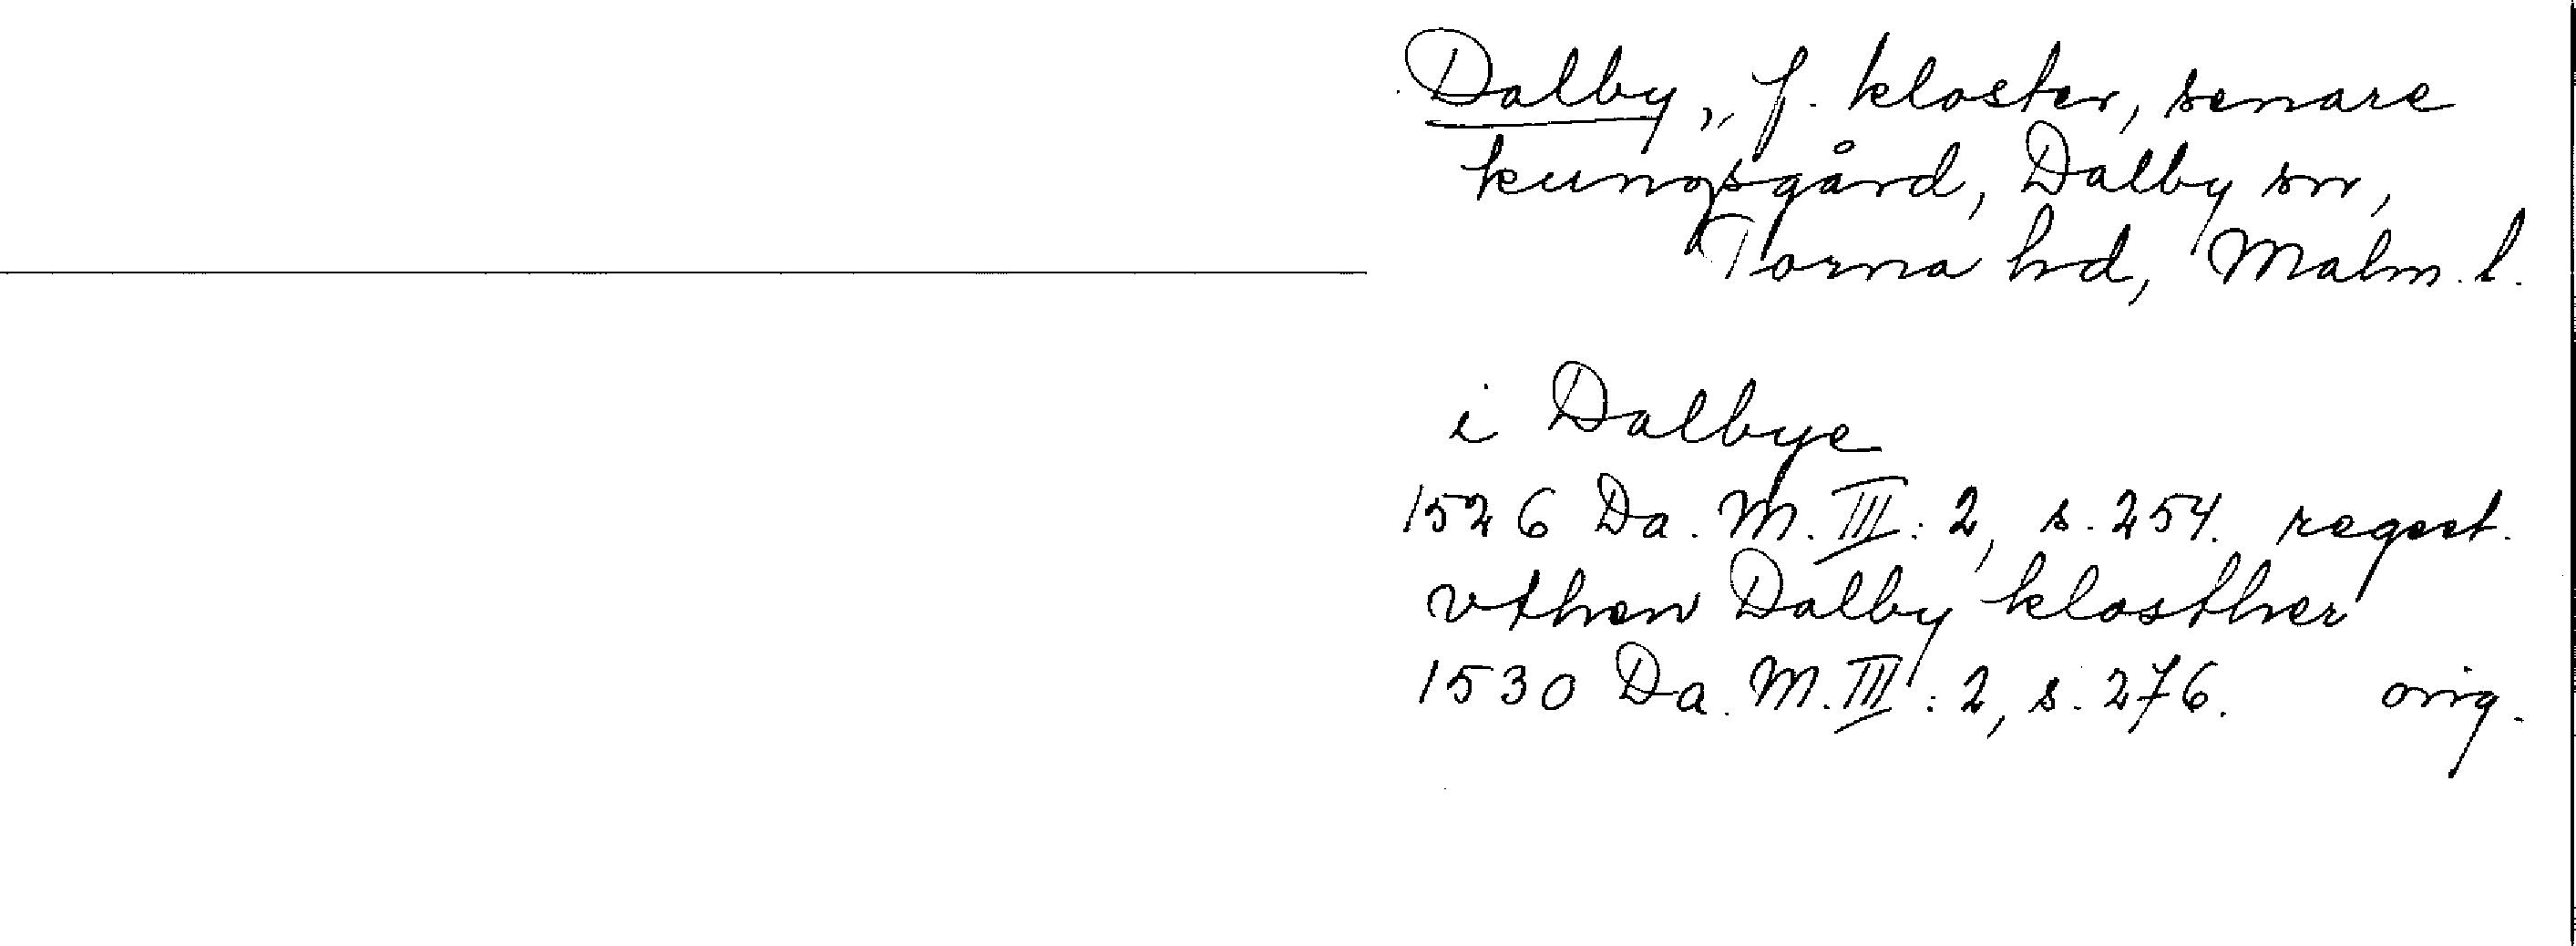 Dalby, f. kloster, senare
kungsgård, Dalby sn,
Torna hd, Malm. l.
i Dalbye
1526 Da. M. III: 2, s. 254. regest.
vthen Dalby klosther
1530 Da. M. III: 2, s. 276. orig.